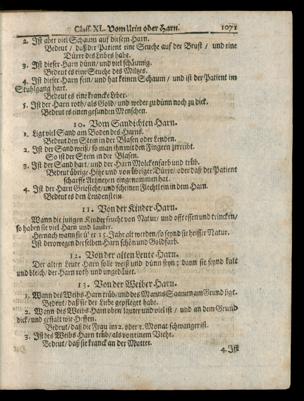 Class. XI. Vom Urin oder Harn. 1071
2. Ist aber viel Schaum auf diesem Harn.
Bedeut / daß der Patient eine Seuche auf der Brust / und eine
Dürre des Leibes habe.
3. Ist dieser Harn dünn / und viel schäumig.
Bedeut es eine Seuche des Miltzes.
4. Ist dieser Harn fein / und hat keinen Schaum / und ist der Patient im
Stuhlgang hart.
Bedeut es eine krancke Leber.
5. Ist der Harn roth / als Gold / und weder zu dünn noch zu dick.
Bedeut es einen gesunden Menschen.
10. Vom Sandichten Harn.
1. Ligt viel Sand am Boden des Harns.
Bedeut den Stein in der Blasen oder Lenden.
2. Ist der Sand weiß / so man ihn mit den Fingern zerreibt.
So ist der Stein in der Blasen.
3. Ist der Sand hart / und der Harn Molckenfarb und trüb.
Bedeut übrige Hitze und von übriger Dürre / oder daß der Patient
scharffe Artzneyen eingenommen hat.
4. Ist der Harn Griesicht / und scheinen
in dem Harn.
Bedeut es den Lendenstein.
11. Von der Kinder Harn.
Wann die jungen Kinder feucht von Natur / und offt essen und trincken /
so haben sie viel Harn und lauter.
Hernach wann sie 15. Jahr alt werden / so seynd sie heisser Natur.
Ist derowegen derselben Harn schön und Goldfarb.
12. Von der alten Leute Harn.
Der alten Leute Harn solle weiß und dünn seyn / dann sie seynd kalt
und bleich / der Harn roth und ungedäuet.
13. Von der Weiber Harn.
1. Wann des Weibs Harn trüb / und des Manns Saamen am Grund ligt.
Bedeut / daß sie der Liebe gepfleget habe.
2. Wann des Weibs Harn oben lauter und viel ist / und an dem Grund
dick / und gestalt wie Heffen.
Bedeut / daß die Frau im 2. oder 3. Monat schwanger ist.
3. Ist des Weibs Harn trüb / als von einem Viehe.
Bedeut / daß sie kranck an der Mutter.
4. Ist